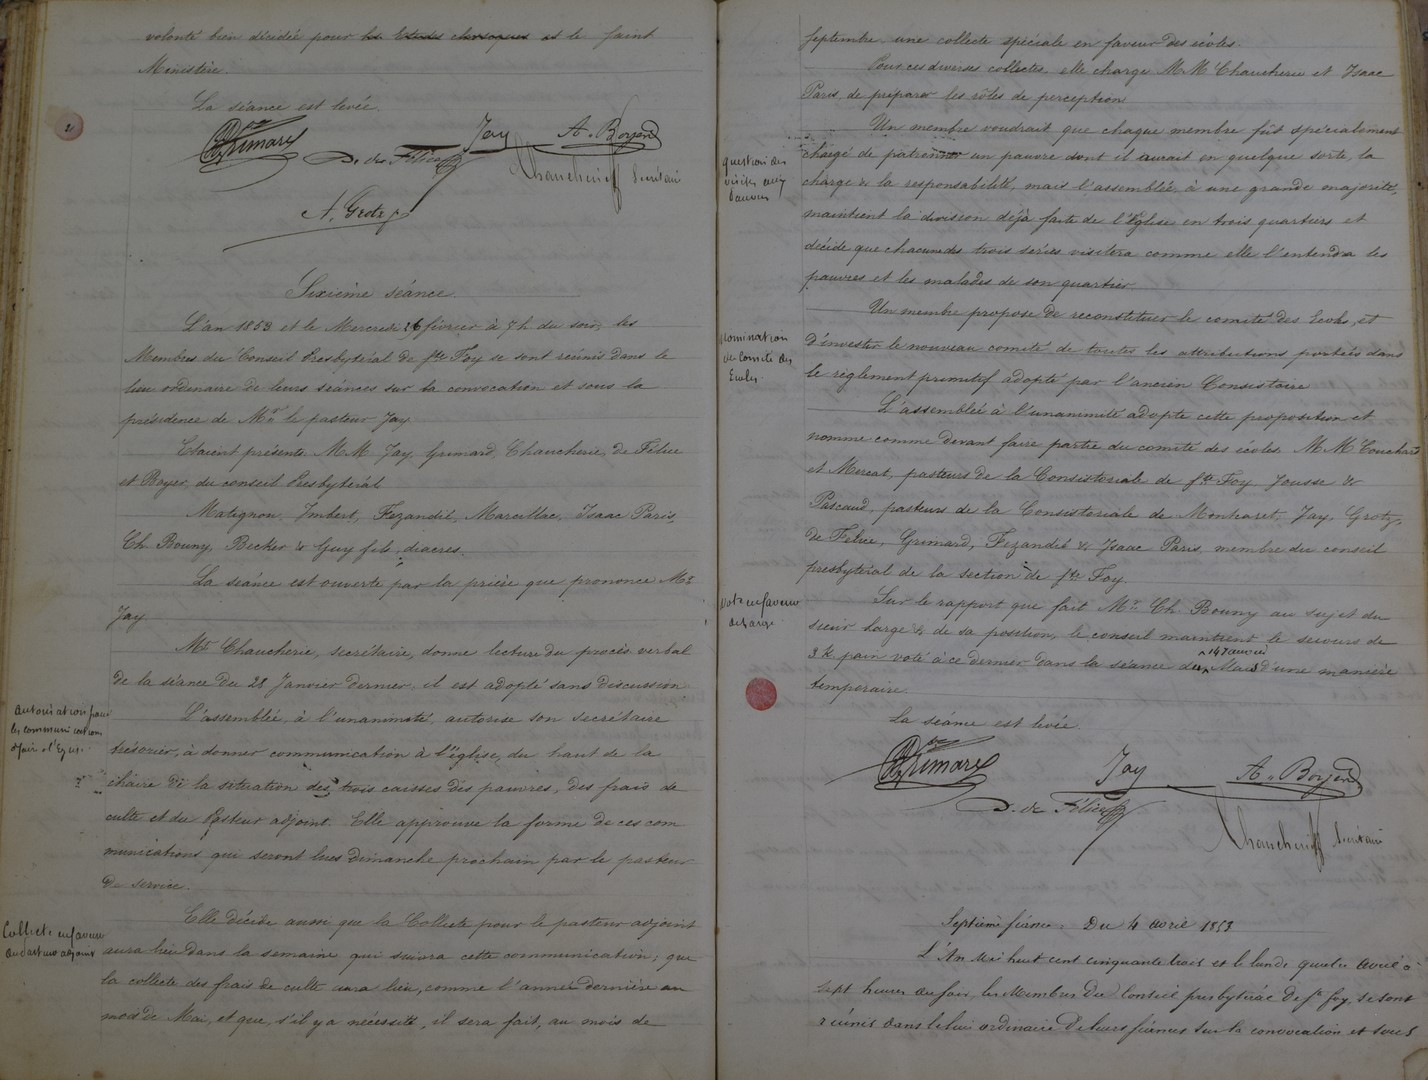 volonté bien décidée pour les études classiques et le saint
Ministère.
La séance est levée.
Grimard
Jay
A. Boyer
D. de Félice
Chaucherie Secrétaire
A. Grotz
Sixième séance
L'an 1853 et le Mercredi 16 février à 7 h du soir, les
Membres du Conseil Presbytéral de Ste Foy se sont réunis dans le
lieu ordinaire de leurs séances sur la convocation et sous la
présidence de Mr le pasteur Jay
Etaient présents M M Jay, Grimard, Chaucherie, de Félice
et Boyer, du conseil Presbytéral
Matignon, Imbert, Fezandié, Marcillac, Isaac Paris,
Ch. Bouny, Becker & Guy fils, diacres.
La séance est ouverte par la prière que prononce Mr
Jay
Mr Chaucherie, secrétaire, donne lecture du procès verbal
de la séance du 28 Janvier dernier, il est adopté sans discussion
autorisation pour
les communications
à faire à l'Eglise.
L'assemblée, à l'unanimité, autorise son secrétaire
trésorier, à donner communication à l'Eglise, du haut de la
chaire de la situation des trois caisses des pauvres, des frais de
culte et du Pasteur adjoint. Elle approuve la forme de ces com
munications qui seront lues dimanche prochain par le pasteur
de service.
Collecte en faveur
du pasteur adjoint
Elle décide aussi que la Collecte pour le pasteur adjoint
aura lieu dans la semaine qui suivra cette communication; que
la collecte des frais de culte aura lieu, comme l'année dernière au
mois de Mai, et que, s'il y a nécessité, il sera fait, au mois de
2
septembre, une collecte spéciale en faveur des écoles.
Pour ces diverses collectes, elle charge M M Chaucherie et Isaac
Paris, de préparer les rôles de perception
question des
visites aux
pauvres
Un membre voudrait que chaque membre fût spécialement
chargé de patronner un pauvre dont il aurait en quelque sorte, la
charge & la responsabilité, mais l'assemblée, à une grande majorité,
maintient la division déjà faite de l'église en trois quartiers et
décide que chacune des trois séries visitera comme elle l'entendra les
pauvres et les malades de son quartier.
Nomination
du Comité des
Ecoles.
Un membre propose de reconstituer le comité des Ecoles, et
d'investir le nouveau comité de toutes les attributions portées dans
le règlement primitif adopté par l'ancien Consistoire
L'assemblée à l'unanimité adopte cette proposition et
nomme comme devant faire partie du comité des écoles M M Couchard
et Mercat, pasteurs de la Consistoriale de Ste Foy Jousse &
Pascaud, pasteurs de la Consistoriale de Moncaret, Jay, Grotz,
de Félice, Grimard, Fezandié & Isaac Paris, membre du conseil
presbytéral de la section de Ste Foy.
Vote en faveur
de Large
Sur le rapport que fait Mr Ch. Bouny au sujet du
sieur Large & de sa position, le conseil maintient le secours de
3 k pain voté à ce dernier dans la séance du 14 Janvier Mais d'une manière
temporaire.
La séance est levée.
Grimard
Jay
A. Boyer
D. de Félice
Chaucherie Secrétaire
Septième séance. Du 4 avril 1853
L'An mil huit cent cinquante trois et le lundi quatre avril à
sept heures du soir, les Membres du Conseil presbytéral de Ste foy se sont
réunis dans le lieu ordinaire de leurs séances sur la convocation et sous